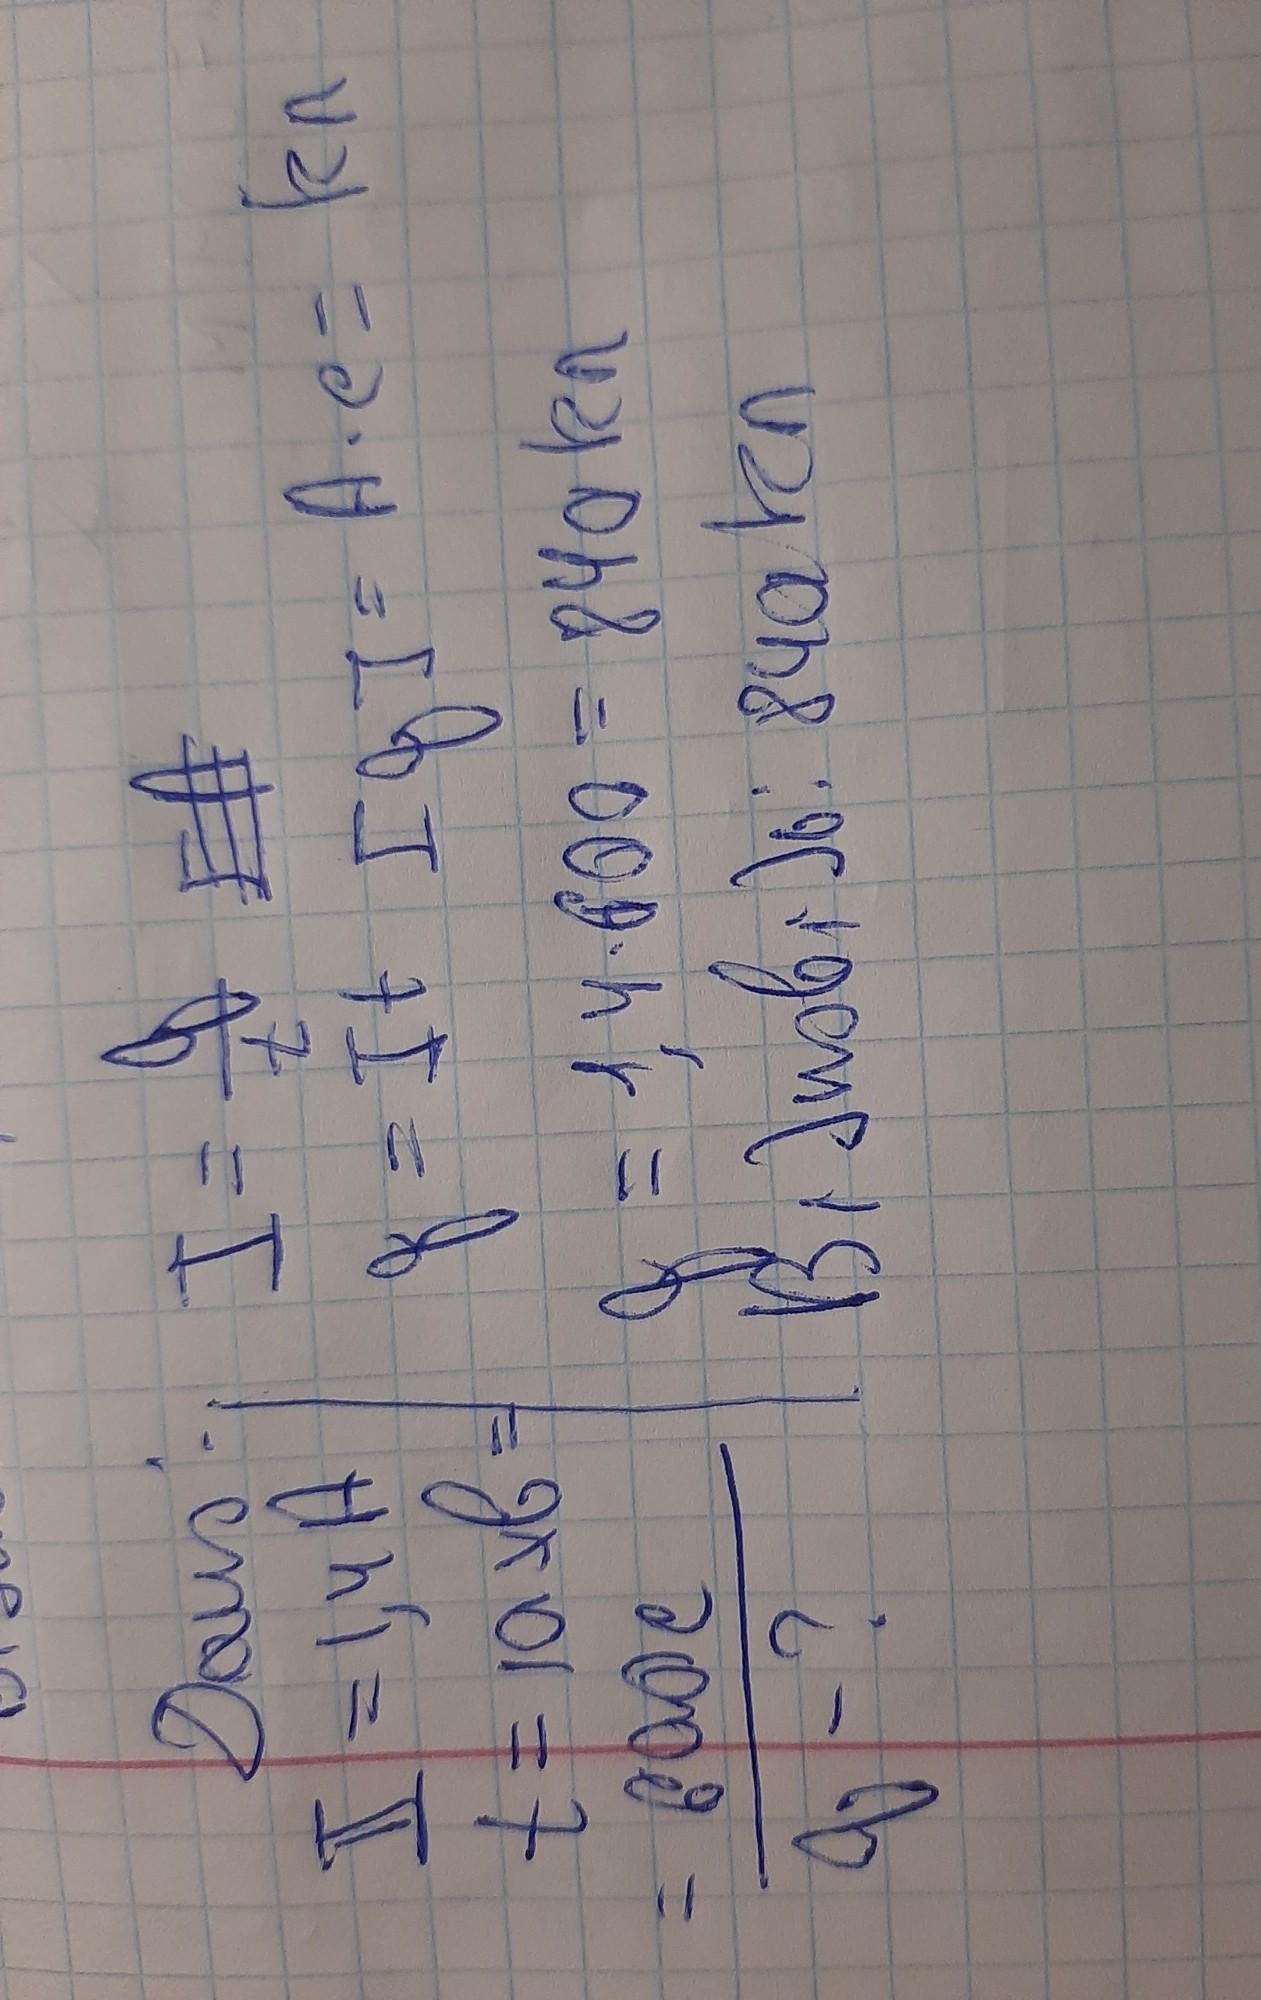 Дано:
I = 1,4 А
t = 10 хв =
= 600 с
q - ?
I = q/t
q = It [q] = А·с = Кл
q = 1,4·600 = 840 Кл
Відповідь: 840 Кл